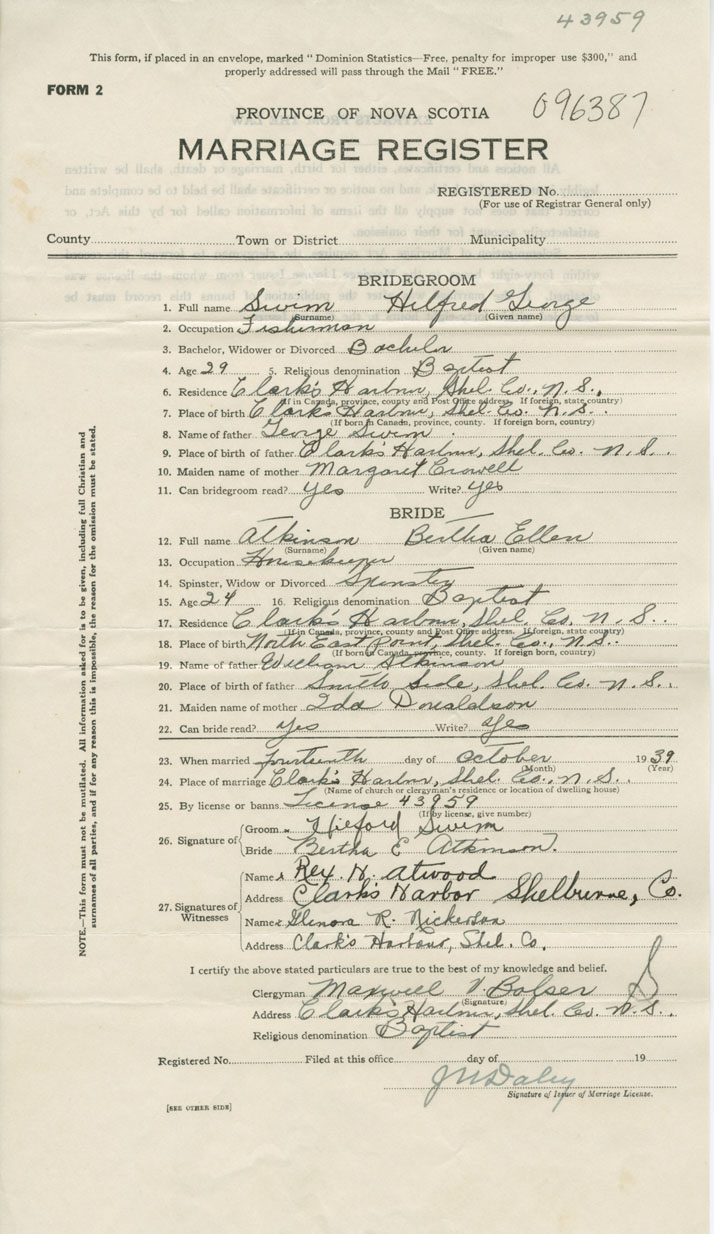 43959
This form, if placed in an envelope, marked "Dominion Statistics—Free, penalty for improper use $300," and
properly addressed will pass through the Mail "FREE."
FORM 2
PROVINCE OF NOVA SCOTIA
096387
MARRIAGE REGISTER
REGISTERED No.
(For use of Registrar General only)
County Town or District Municipality
BRIDEGROOM
1. Full name Swim Hilfred George
(Surname) (Given name)
2. Occupation Fisherman
3. Bachelor, Widower or Divorced Bachelor
4. Age 29 5. Religious denomination Baptist
6. Residence Clark's Harbour, Shel. Co., N. S.,
(If in Canada, province, county and Post Office address. If foreign, state country)
7. Place of birth Clark's Harbour, Shel. Co. N. S.
(If born in Canada, province, county. If foreign born, country)
8. Name of father George Swim
9. Place of birth of father Clark's Harbour, Shel. Co. N. S.
10. Maiden name of mother Margaret Crowell
11. Can bridegroom read? Yes Write? Yes
BRIDE
12. Full name Atkinson Bertha Ellen
(Surname) (Given name)
13. Occupation Housekeeper
14. Spinster, Widow or Divorced Spinster
15. Age 24 16. Religious denomination Baptist
17. Residence Clark's Harbour, Shel. Co. N. S.
(If in Canada, province, county and Post Office address. If foreign, state country)
18. Place of birth North East Point, Shel. Co., N. S.
(If born in Canada, province, county. If foreign born, country)
19. Name of father William Atkinson
20. Place of birth of father South Side, Shel. Co. N. S.
21. Maiden name of mother Ida Donaldson
22. Can bride read? Yes Write? Yes
23. When married fourteenth day of October 1939
(Month) (Year)
24. Place of marriage Clark's Harbour, Shel. Co., N. S.
(Name of church or clergyman's residence or location of dwelling house)
25. By license or banns License 43959
(If by license, give number)
26. Signature of Groom Hilford Swim
Bride Bertha E Atkinson.
27. Signatures of Witnesses Name Rex. H. Atwood
Address Clark's Harbor Shelburne, Co.
Name Glenora R. Nickerson
Address Clark's Harbour, Shel. Co.
I certify the above stated particulars are true to the best of my knowledge and belief.
Clergyman Maxwell V. Bolser
(Signature)
Address Clark's Harbour, Shel. Co. N. S.
Religious denomination Baptist
Registered No. Filed at this office day of 19
Signature of Issuer of Marriage License.
[SEE OTHER SIDE]
NOTE.—This form must not be mutilated. All information asked for is to be given, including full Christian and
surnames of all parties, and if for any reason this is impossible, the reason for the omission must be stated.